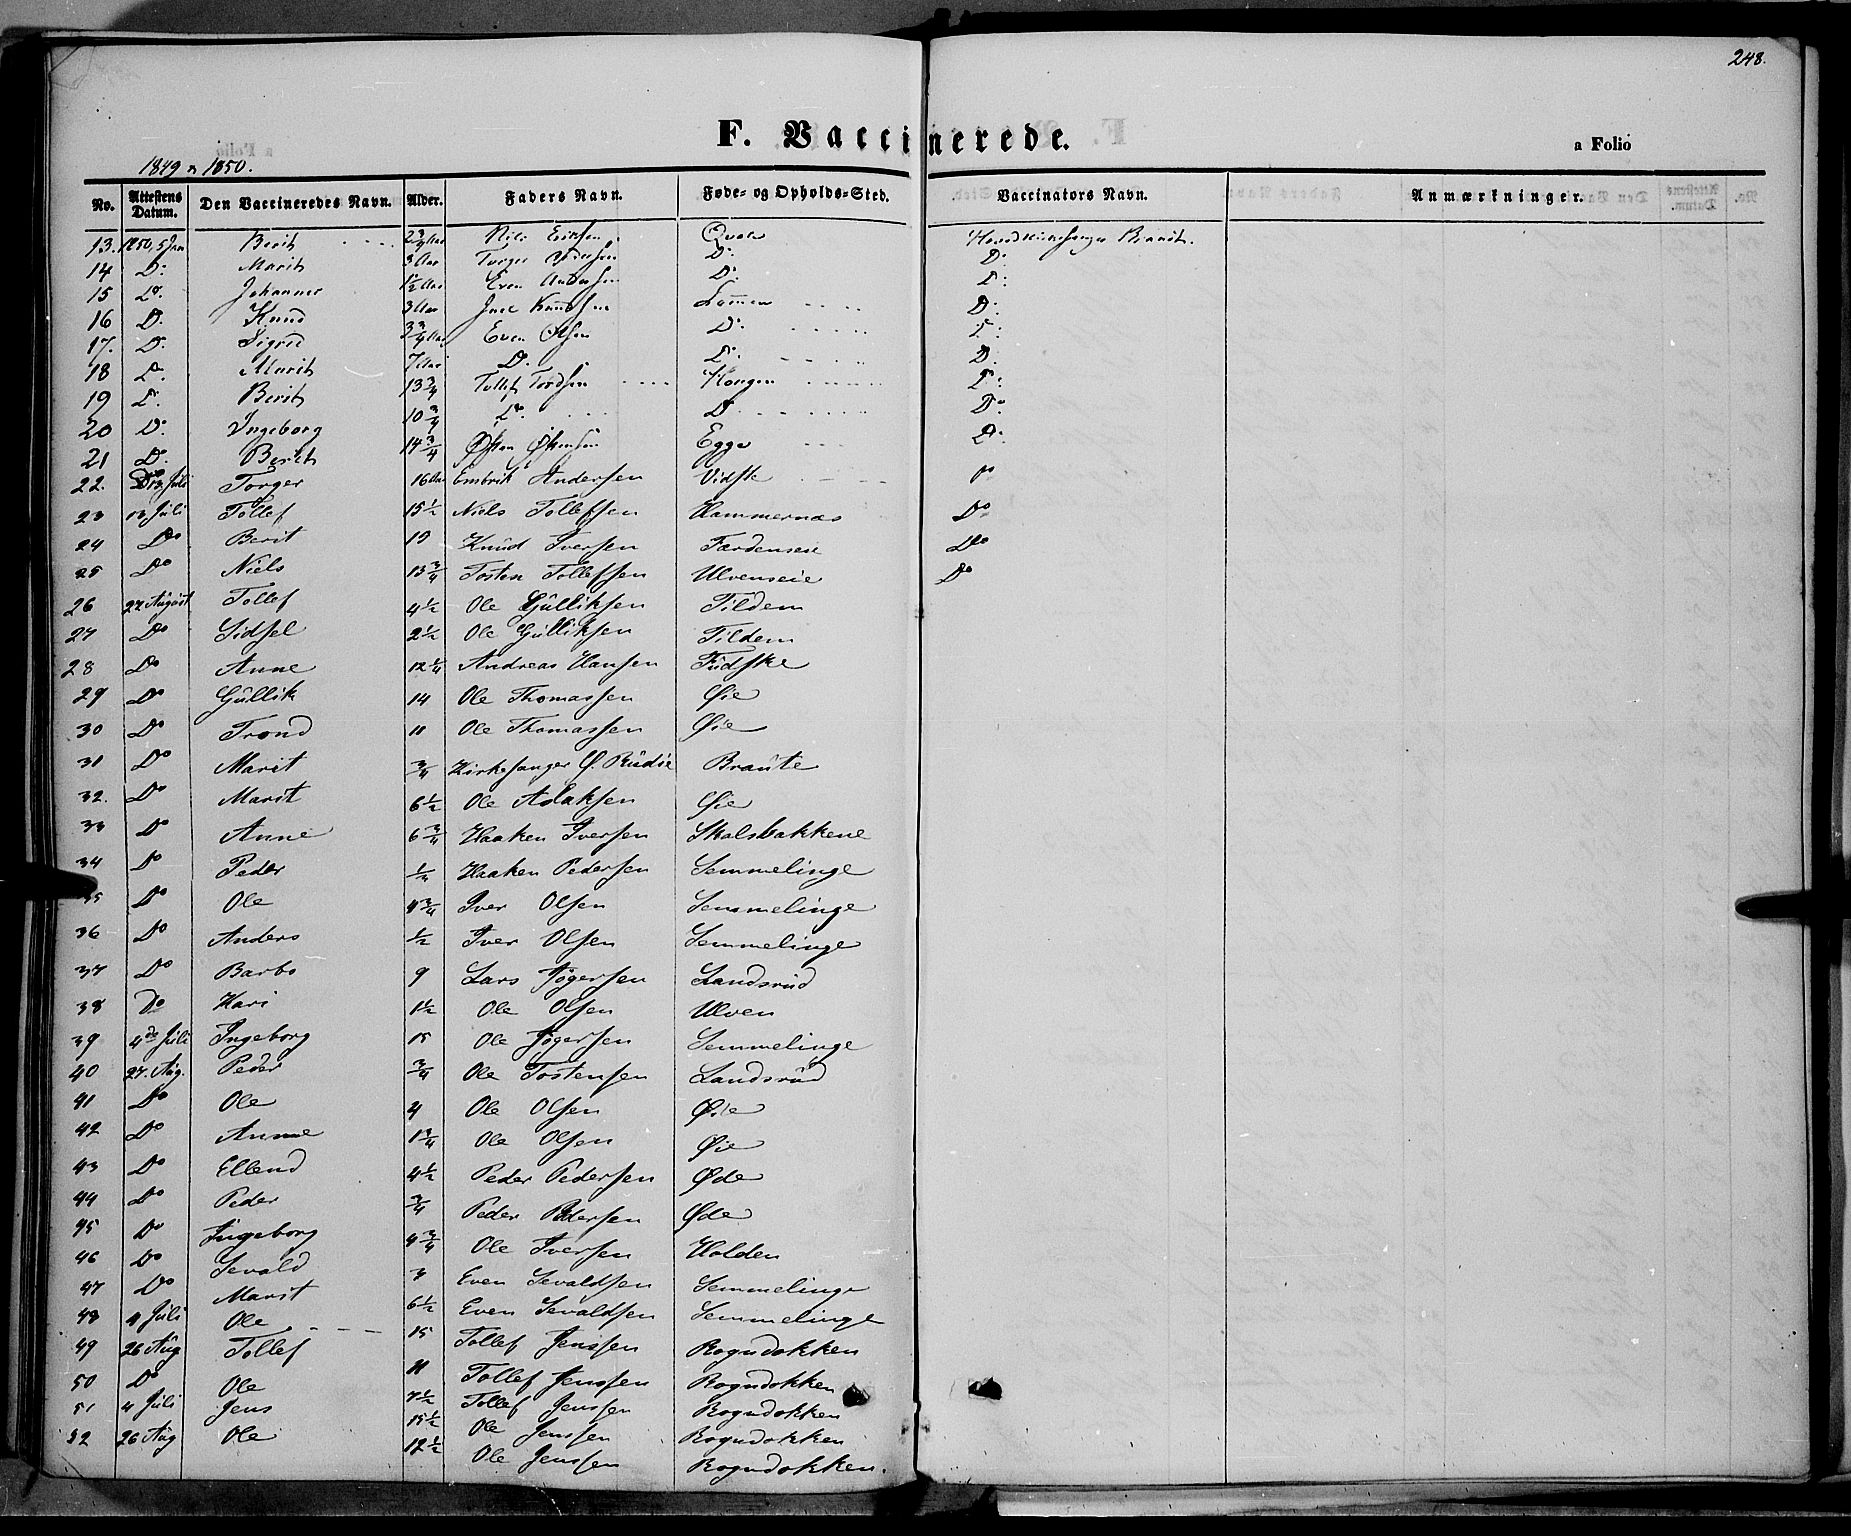 248.
F. Vaccinerede.
a Folio
1849 & 1850.
No. Attestens Datum. Den Vaccineredes Navn. Alder. Faders Navn. Føde- og Opholds-Sted. Vaccinators Navn. Anmærkninger.
13. 1850, 5 Jan Berit 2 3/4 Aar Nils Eriksen Qvale
14 Do Marit 3 Aar Torger Do Do
15 Do Johannes 1 1/2 Aar Even Andersen Do Do
16 D. Knud 3 Aar Knudsen Lommen D.
17. D. Sigrid 3/4 Aar Even Olsen D. D.
18 D. Marit 7 Aar D. D. D.
19 D. Berit 13 3/4 Tollef Tordsen Hougen D.
20 D. Ingeborg 10 3/4 D. D. D.
21 D. Berit 14 3/4 Østen Østensen Egge D.
22. 13 Juli Torger 16 Aar Embrik Andersen Vidste Do
23 13 Juli Tollef 15 1/2 Niels Tollefsen Hammernæs Do
24 Do Berit 19 Knud Iversen Færdenseie Do
25 Do Niels 13 3/4 Tosten Tollefsen Ulvenseie Do
26 27 August Tollef 4 1/2 Ole Gulliksen Tildem
27 Do Sidsel 2 1/2 Ole Gulliksen Tildem
28 Do Anne 12 1/4 Andreas Hansen Fudske
29 Do Gullik 14 Ole Thomassen Øie
30 Do Trond 11 Ole Thomassen Øie
31 Do Marit 3/4 Kirkesanger O. Rudie Braute
32. Do Marit 6 1/2 Ole Aslaksen Øie
33 Do Anne 6 3/4 Haaken Iversen Skalsbakkene
34 Do Peder 1/4 Haaken Pedersen Semmelinge
35 Do Ole 4 3/4 Iver Olsen Semmelinge
36 Do Anders 1/2 Iver Olsen Semmelinge
37 Do Barbo 9 Lars Jøgersen Landsrud
38 Do Kari 1 1/2 Ole Olsen Ulven
39 4de Juli Ingeborg 15 Ole Jøgersen Semmelinge
40 27. Aug. Peder 3/4 Ole Tostensen Landsrud
41 Do Ole 4 Ole Olsen Øie
42 Do Anne 1 3/4 Ole Olsen Øie
43 Do Ellend 4 1/2 Peder Pedersen Øde
44 Do Peder 3/4 Peder Pedersen Øde
45 Do Ingeborg 4 3/4 Ole Iversen Holden
46 Do Sevald 3 Even Sevaldsen Semmelinge
47 Do Marit 6 1/2 Even Sevaldsen Semmelinge
48 4 Juli Ole 15 Tollef Jenssen Rogndokken
49 26 Aug Tollef 11 Tollef Jenssen Rogndokken
50 Do Ole 7 1/2 Tollef Jenssen Rogndokken
51 4 Juli Jens 15 1/2 Ole Jenssen Rogndokken
52 26 Aug Ole 12 1/2 Ole Jenssen Rogndokken.